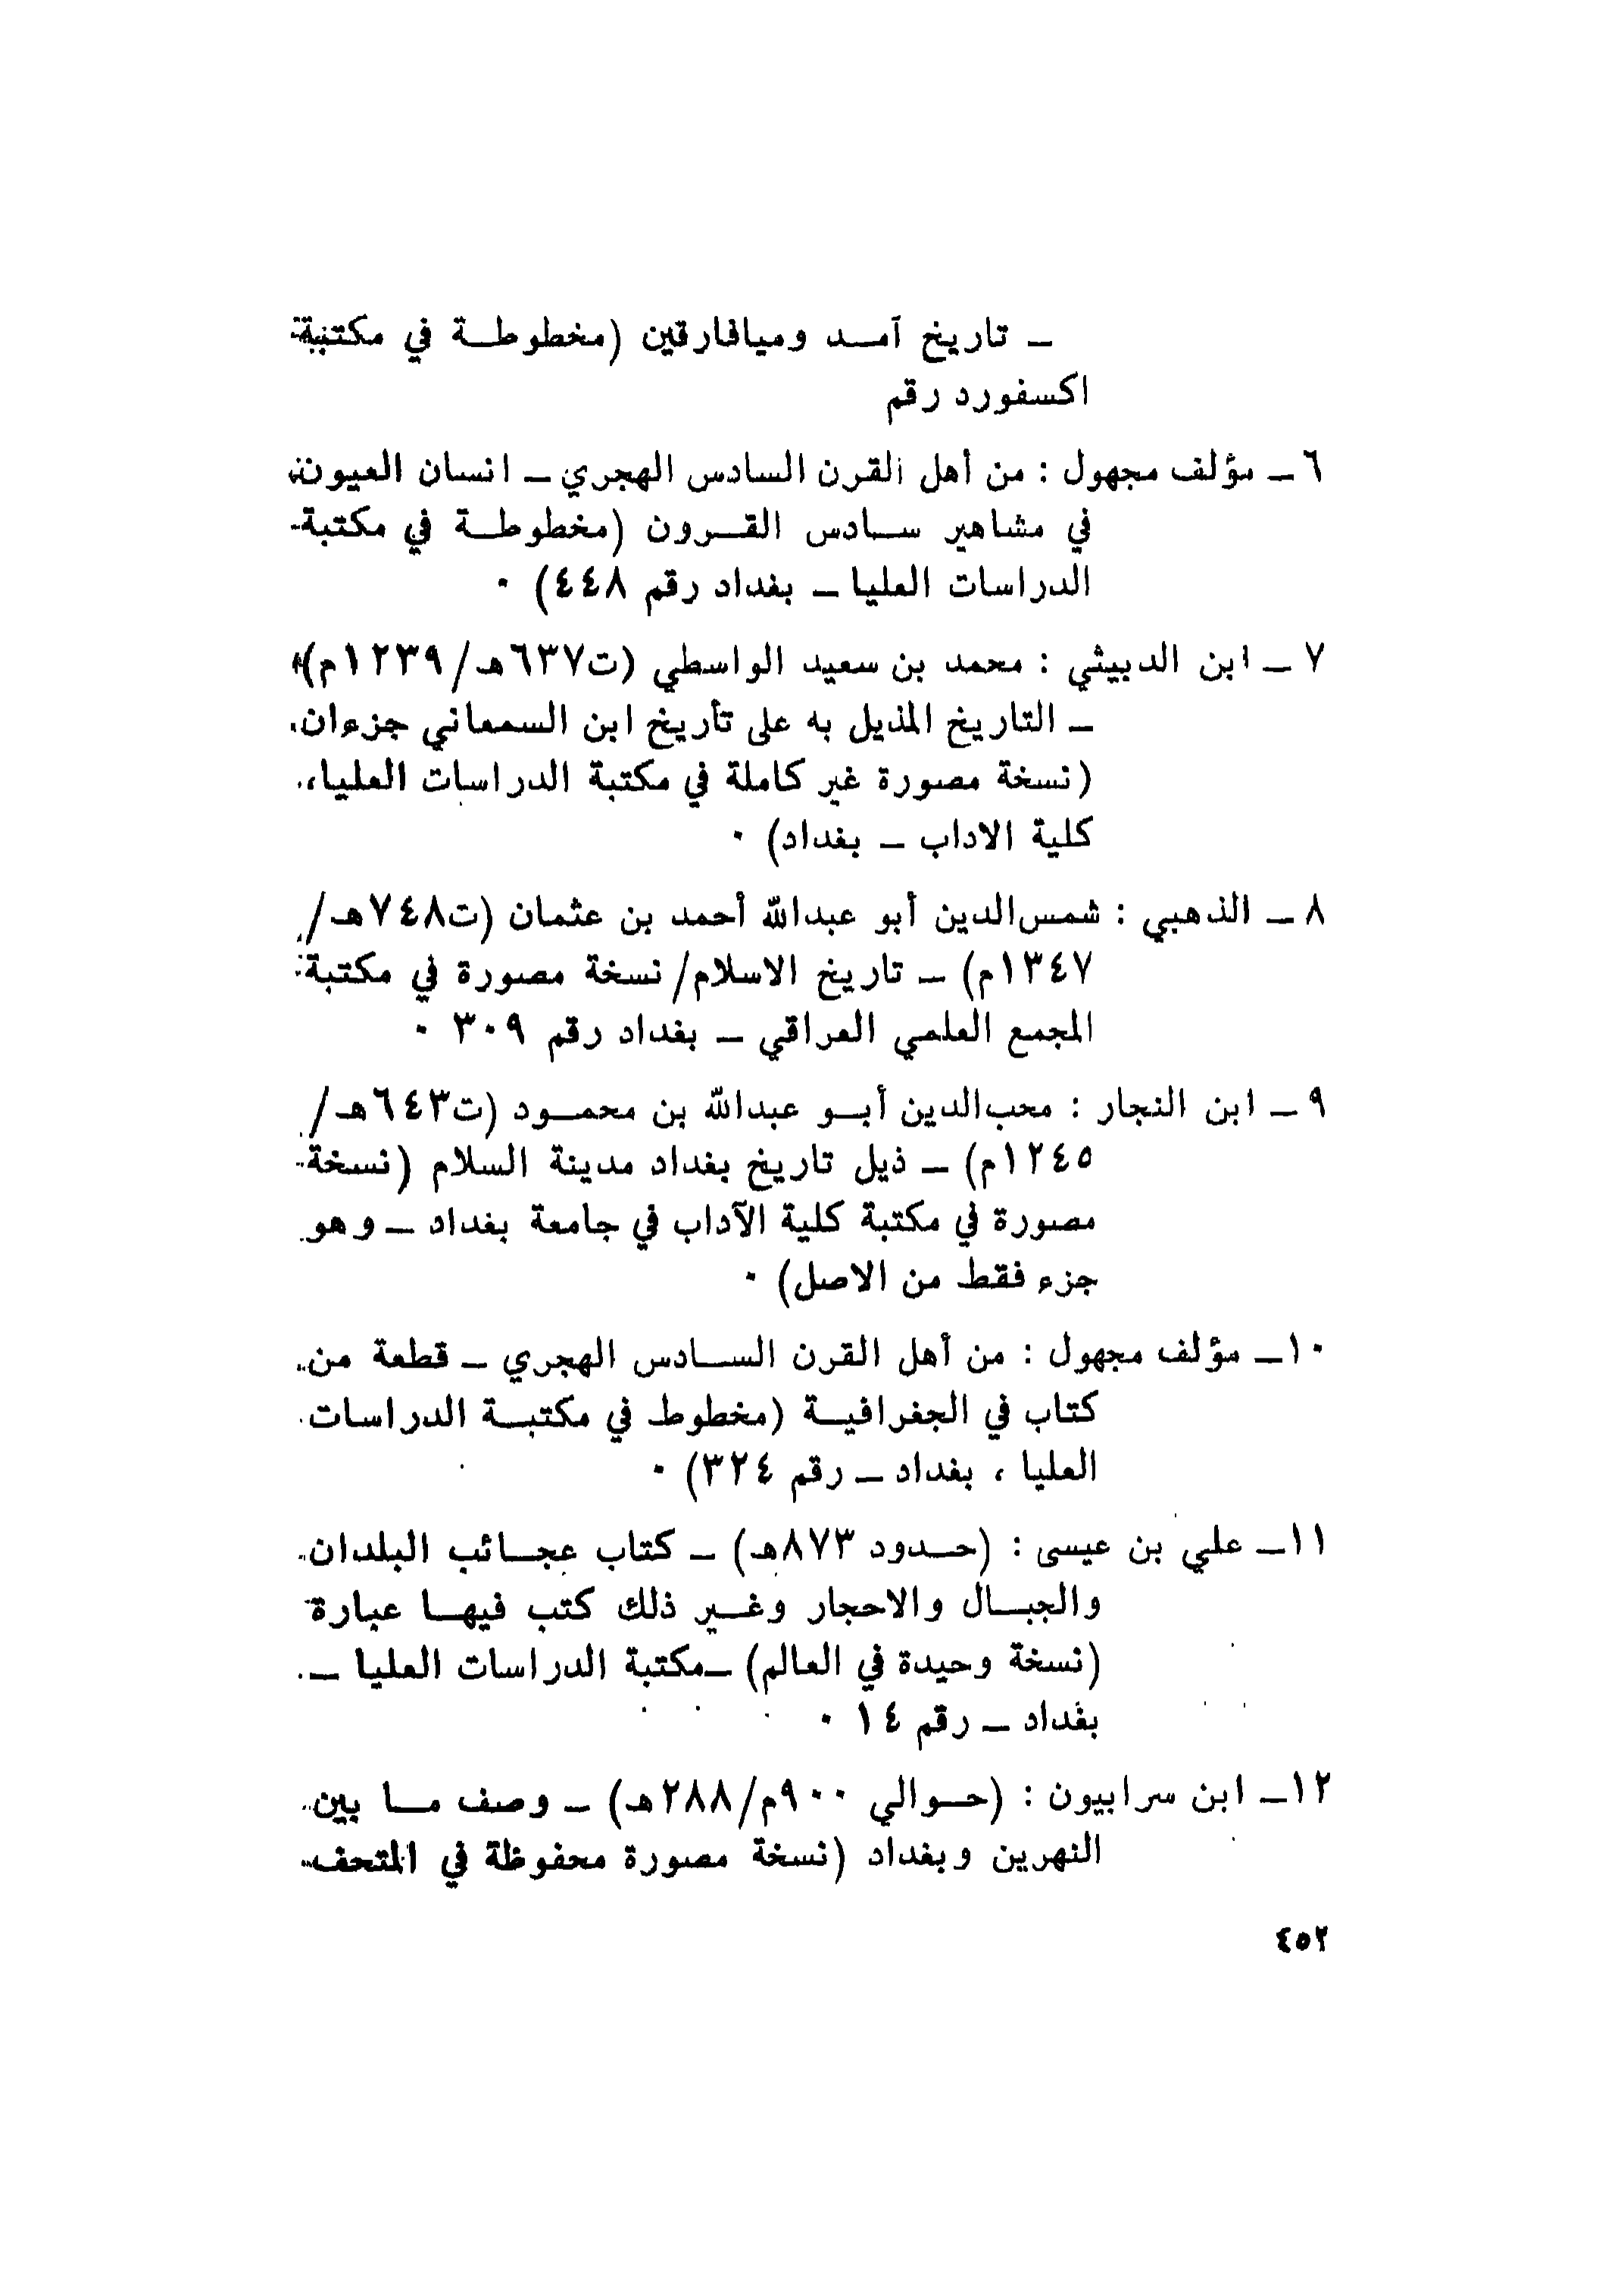 ـ تاريخ آمـد وميافارقين (مخطوطـة في مكتبة
اكسفورد رقم
٦ ـ مؤلف مجهول : من أهل القرن السادس الهجري ـ انسان العيون
في مشاهير سـادس القـرون (مخطوطـة في مكتبة
الدراسات العليا ـ بغداد رقم ٤٤٨) ٠
٧ ـ ابن الدبيثي : محمد بن سعيد الواسطي (ت٦٣٧هـ/١٢٣٩م)
ـ التاريخ المذيل به على تأريخ ابن السمعاني جزءان
(نسخة مصورة غير كاملة في مكتبة الدراسات العليا،
كلية الاداب ـ بغداد) ٠
٨ ـ الذهبي : شمس‌الدين أبو عبدالله أحمد بن عثمان (ت٧٤٨هـ/
١٣٤٧م) ـ تاريخ الاسلام/نسخة مصورة في مكتبة
المجمع العلمي العراقي ـ بغداد رقم ٣٠٩ ٠
٩ ـ ابن النجار : محب‌الدين أبـو عبدالله بن محمـود (ت٦٤٣هـ/
١٢٤٥م) ـ ذيل تاريخ بغداد مدينة السلام (نسخة
مصورة في مكتبة كلية الآداب في جامعة بغداد ـ وهو
جزء فقط من الاصل) ٠
١٠ـ مؤلف مجهول : من أهل القرن السـادس الهجري ـ قطعة من
كتاب في الجغرافيـة (مخطوط في مكتبـة الدراسات
العليا ، بغداد ـ رقم ٣٢٤) ٠
١١ـ علي بن عيسى : (حـدود ٨٧٣هـ) ـ كتاب عجـائب البلدان
والجبـال والاحجار وغـير ذلك كتب فيهـا عبارة
(نسخة وحيدة في العالم) ـمكتبة الدراسات العليا ـ
بغداد ـ رقم ١٤ ٠
١٢ـ ابن سرابيون : (حـوالي ٩٠٠م/٢٨٨هـ) ـ وصف مـا بين
النهرين وبغداد (نسخة مصورة محفوظة في المتحف
٤٥٢